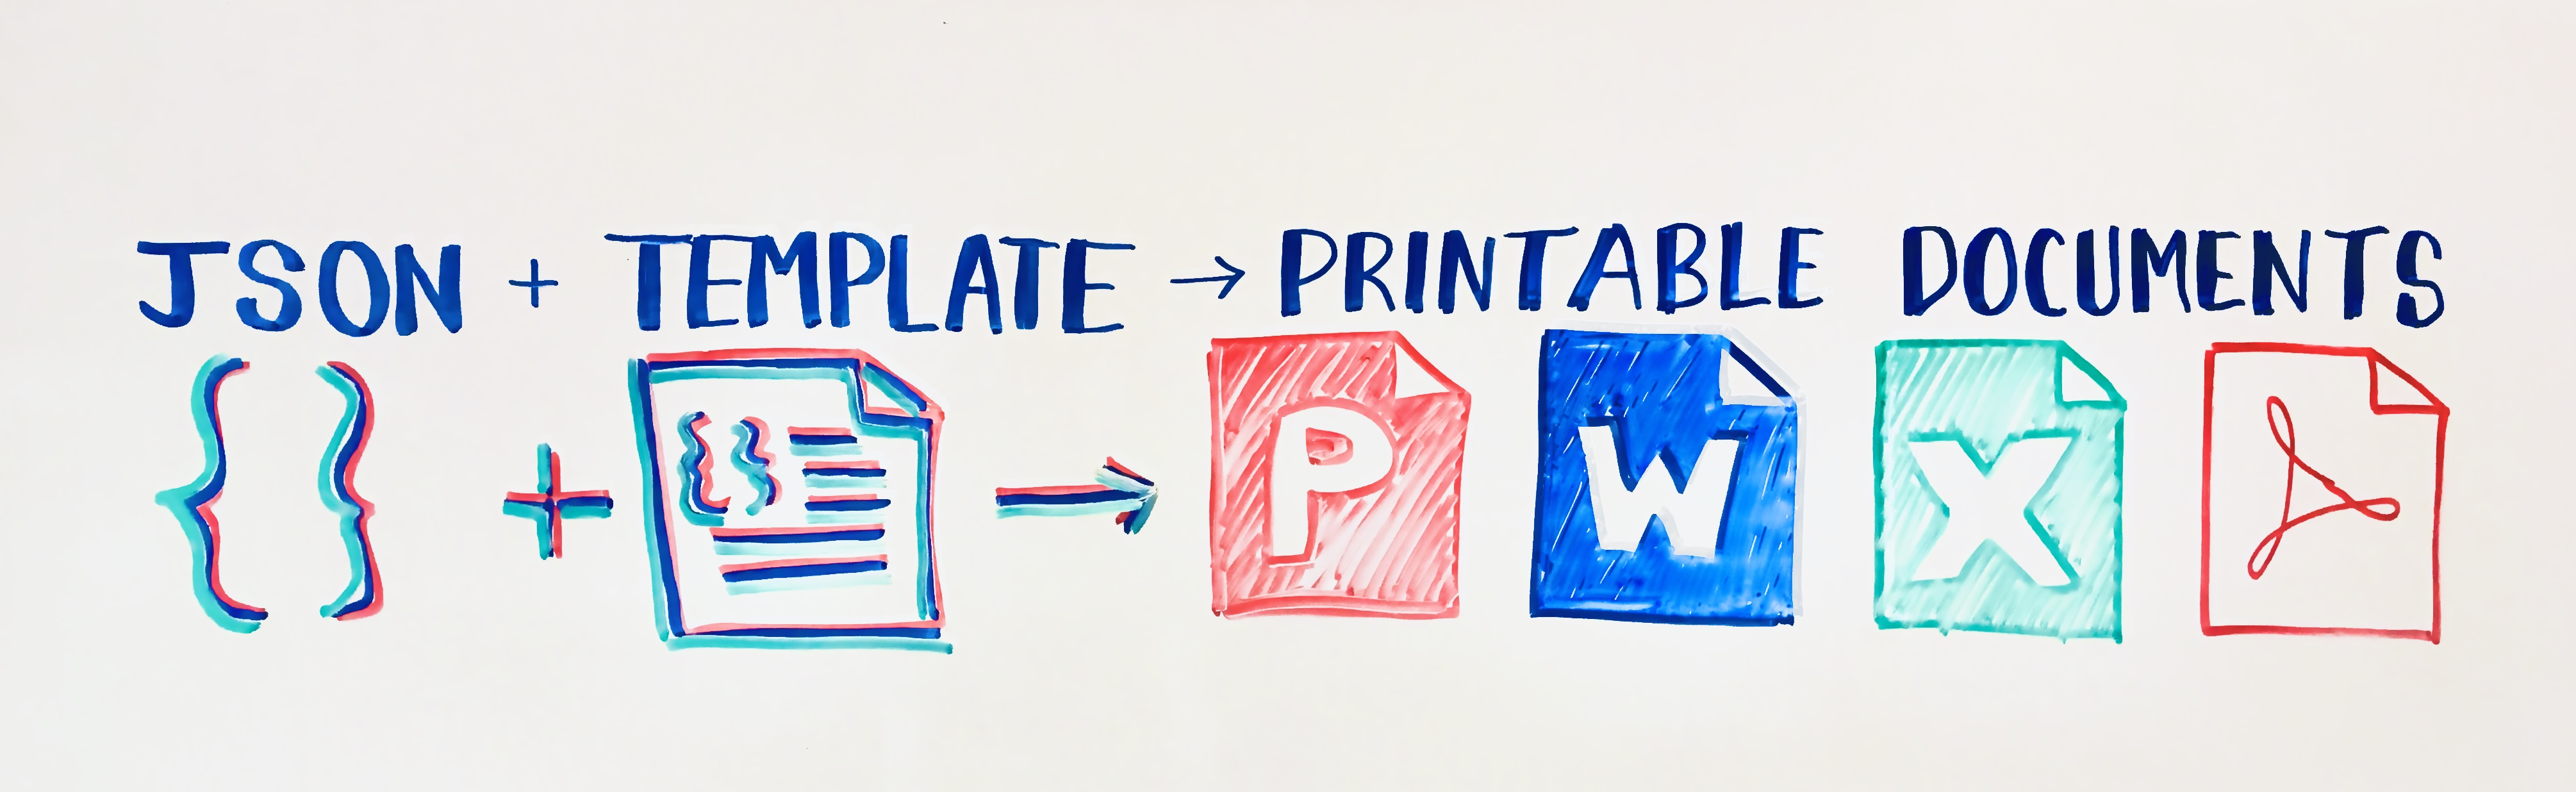 JSON + TEMPLATE → PRINTABLE DOCUMENTS
{ } + {} → P W X